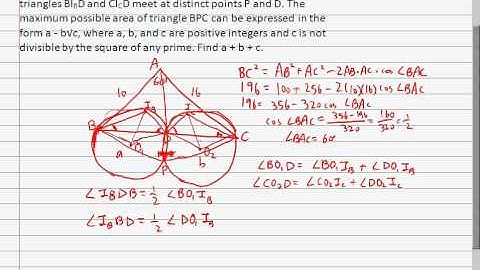 triangles BIBD and CICD meet at distinct points P and D. The
maximum possible area of triangle BPC can be expressed in the
form a - b√c, where a, b, and c are positive integers and c is not
divisible by the square of any prime. Find a + b + c.
A
60
10
16
IB
I
B
C
O1
O2
a
b
P
BC² = AB² + AC² - 2AB·AC·cos ∠BAC
196 = 100 + 256 - 2(10)(16) cos ∠BAC
196 = 356 - 320 cos ∠BAC
cos ∠BAC = 356-196/320 = 160/320 = 1/2
∠BAC = 60
∠BO1D = ∠BO1IB + ∠DO1IB
∠CO2D = ∠CO2IC + ∠DO2IC
∠IBDB = 1/2 ∠BO1IB
∠IBBD = 1/2 ∠DO1IB